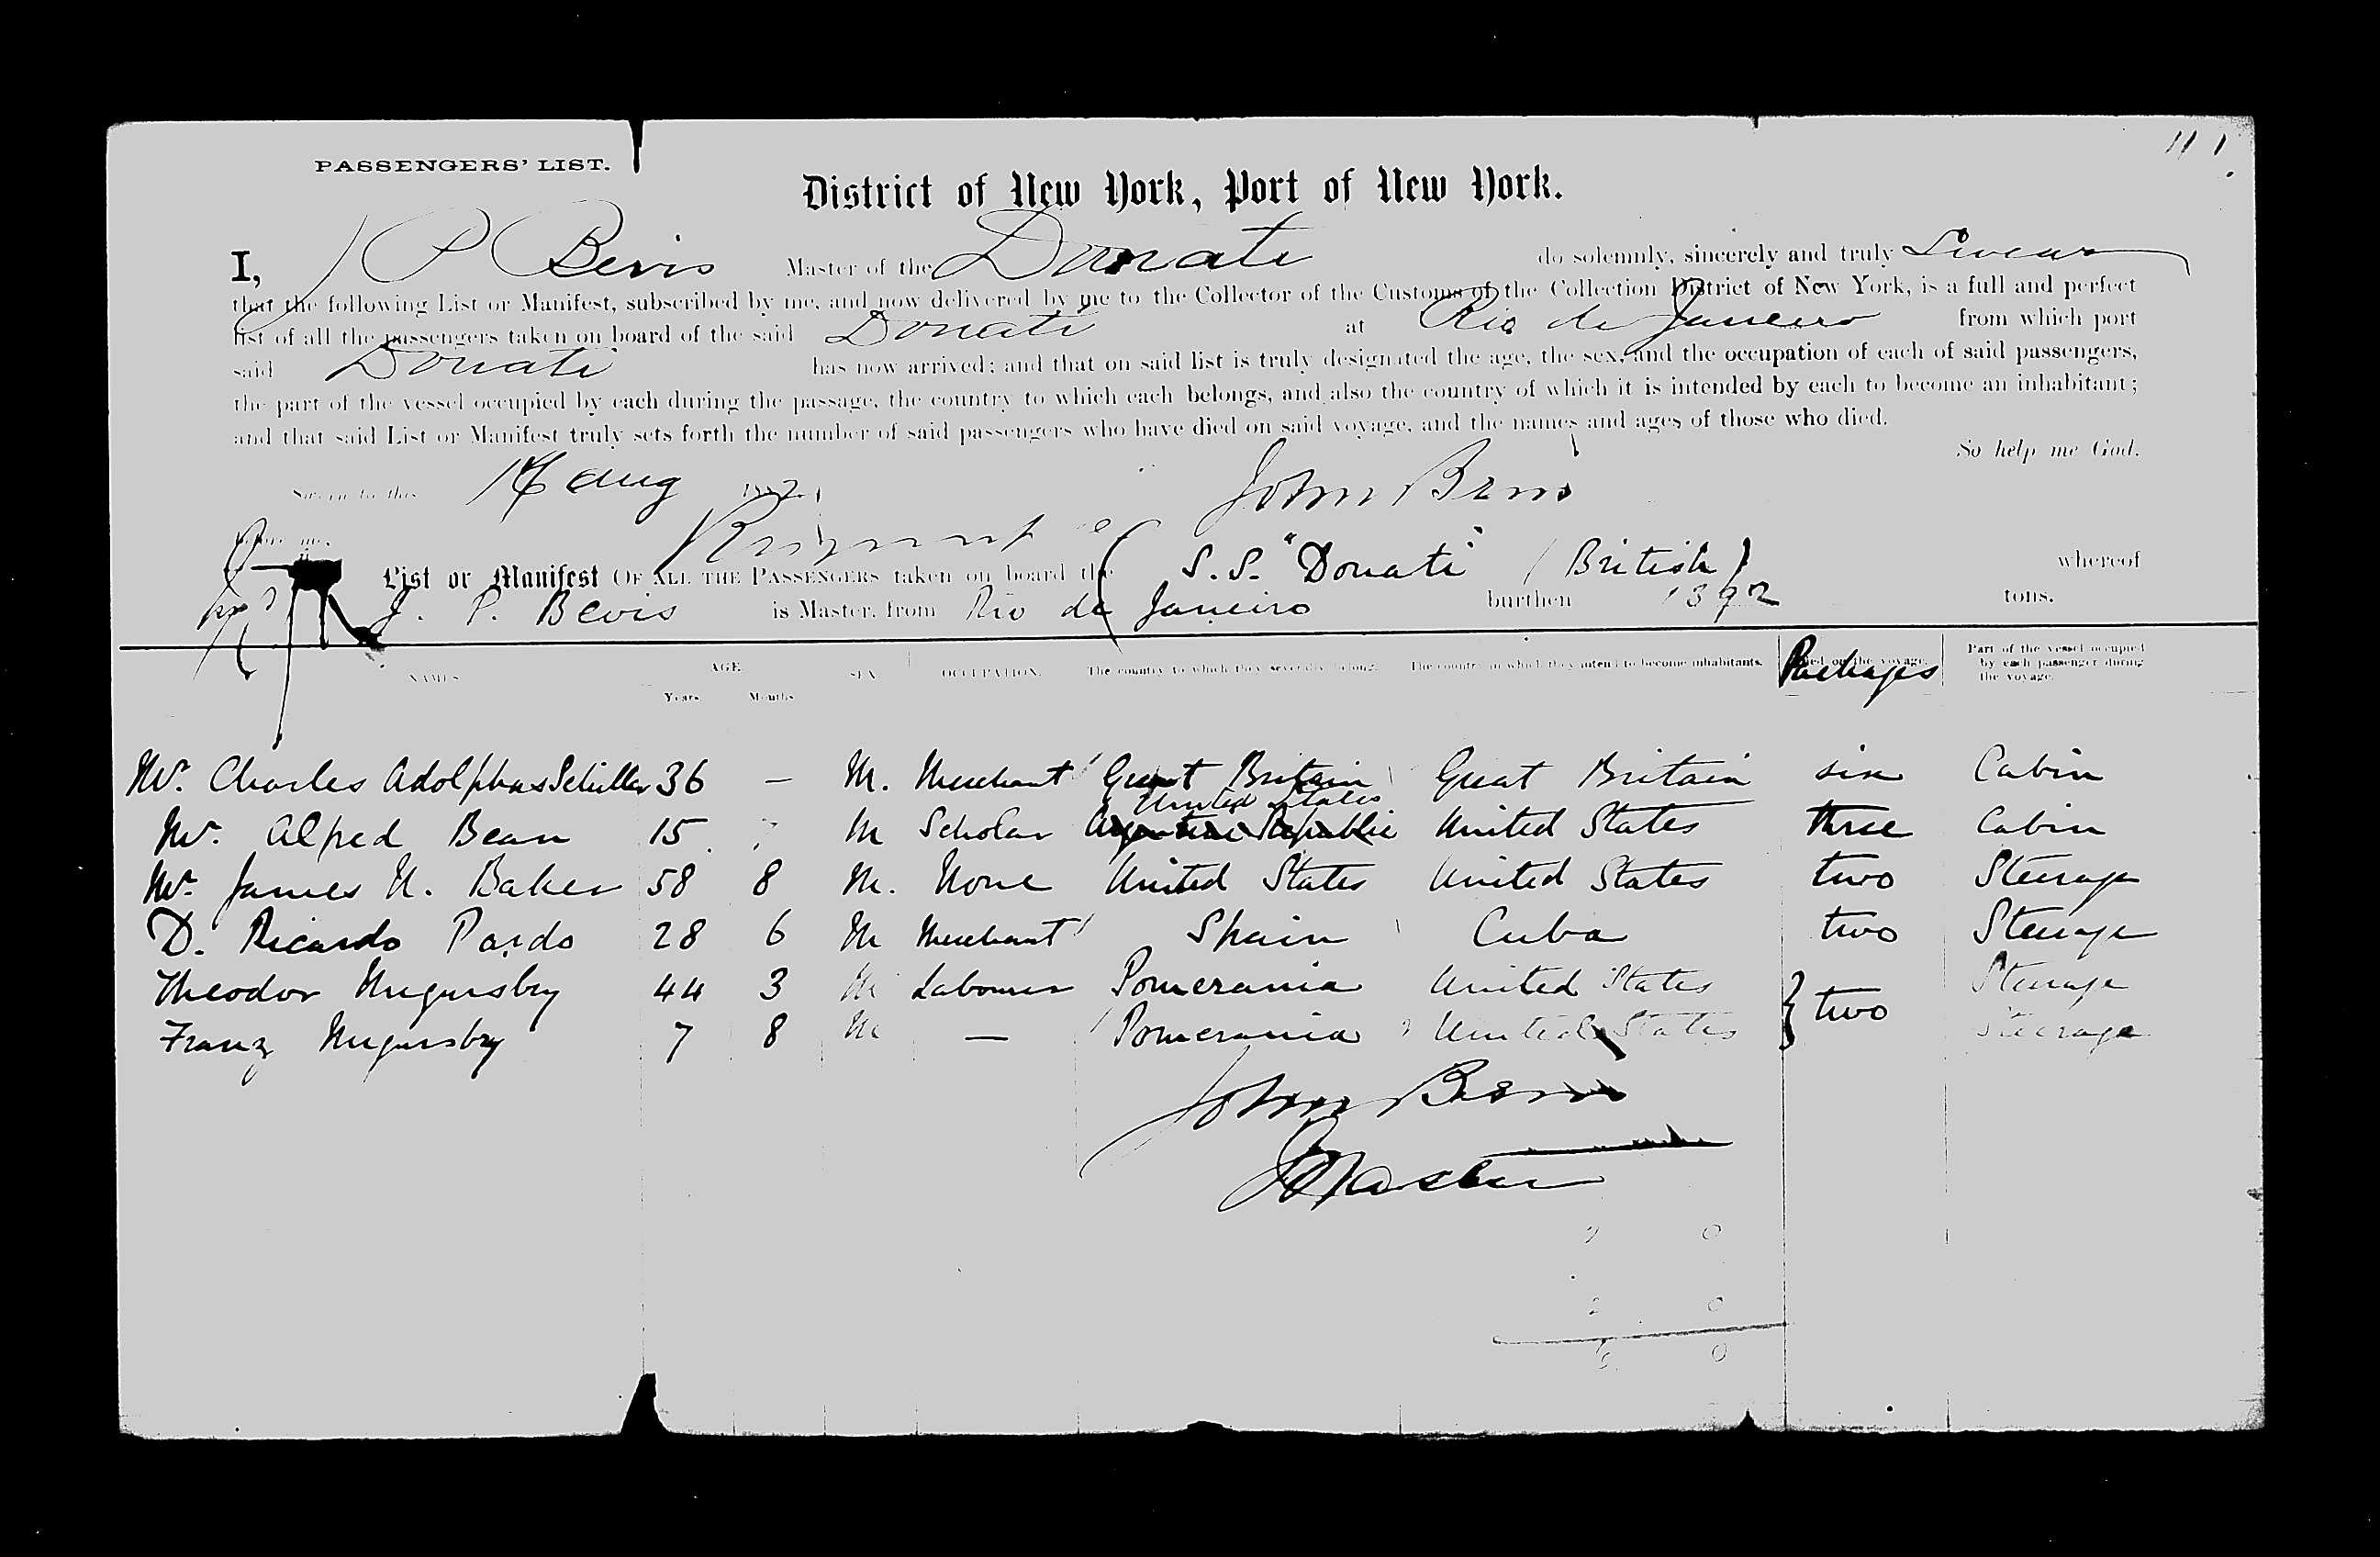 11 1
PASSENGERS' LIST.
District of New York, Port of New York.
I, J P Bevis Master of the Donati do solemnly, sincerely and truly Swear
that the following List or Manifest, subscribed by me, and now delivered by me to the Collector of the Customs of the Collection District of New York, is a full and perfect
list of all the passengers taken on board of the said Donati at Rio de Janeiro from which port
said Donati has now arrived; and that on said list is truly designated the age, the sex, and the occupation of each of said passengers,
the part of the vessel occupied by each during the passage, the country to which each belongs, and also the country of which it is intended by each to become an inhabitant;
and that said List or Manifest truly sets forth the number of said passengers who have died on said voyage, and the names and ages of those who died.
So help me God.
Sworn to this Aug John Bevis
before me,
List or Manifest OF ALL THE PASSENGERS taken on board the S.S. "Donati" (British) whereof
J. P. Bevis is Master, from Rio de Janeiro burthen 1392 tons.
NAMES AGE. Years. Months SEX OCCUPATION. The country to which they severally belong. The country in which they intend to become inhabitants. Packages Part of the vessel occupied by each passenger during the voyage.
Mr. Charles Adolphus Schiller 36 — M. Merchant Great Britain Great Britain six Cabin
United States
Mr. Alfred Bean 15 M Scholar Argentine Republic United States three Cabin
Mr. James N. Baker 58 8 M. None United States United States two Steerage
D. Ricardo Pardo 28 6 M Merchant Spain Cuba two Steerage
Theodor 44 3 M Labourer Pomerania United States Steerage
two
Franz 7 8 M — Pomerania United States Steerage
John Bevis
Master
0
2 0
6 0